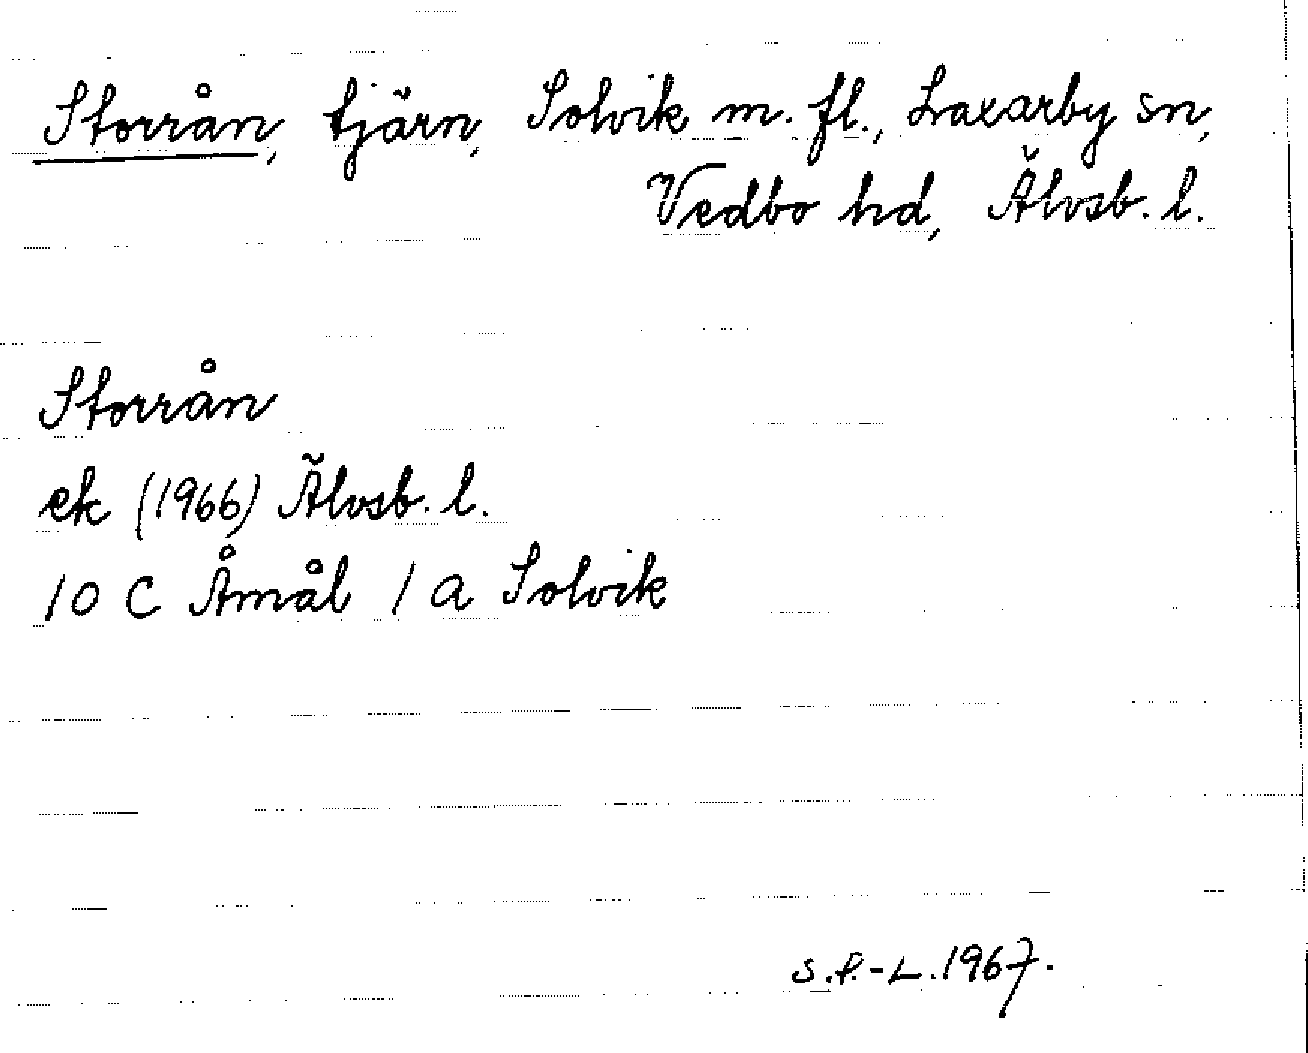 Storrån, tjärn, Solvik m. fl., Laxarby sn,
Vedbo hd, Älvsb. l.
Storrån
ek (1966) Älvsb. l.
10 C Åmål 1 a Solvik
S.f.-L. 1967.